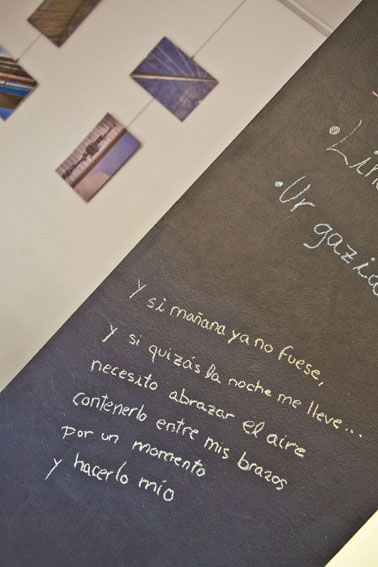 • Ur gazia
Y si mañana ya no fuese,
y si quizás la noche me lleve...
necesito abrazar el aire
contenerlo entre mis brazos
por un momento
y hacerlo mío